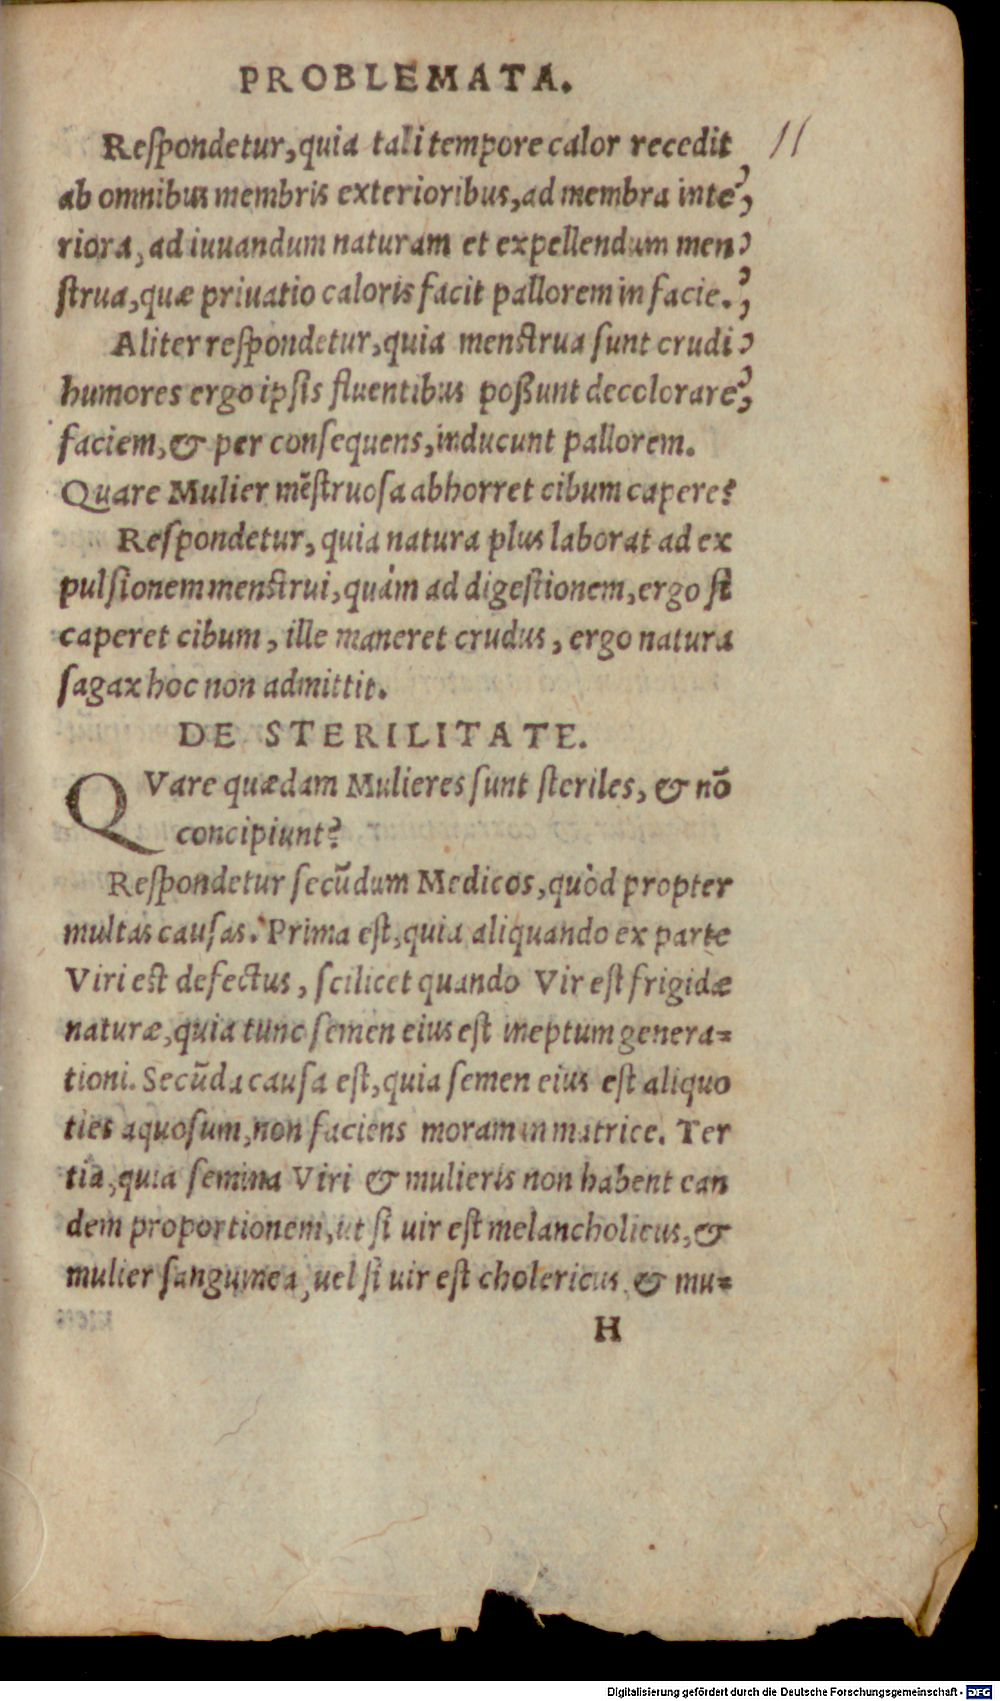 PROBLEMATA.
Reſpondetur, quia tali tempore calor recedit
ab omnibus membris exterioribus, ad membra inte
riora, ad iuuandum naturam et expellendum men
ſtrua, quæ priuatio caloris facit pallorem in facie.
Aliter reſpondetur, quia menſtrua ſunt crudi
humores ergo ipſis fluentibus poßunt decolorare
faciem, & per conſequens, inducunt pallorem.
Quare Mulier mēſtruoſa abhorret cibum capere?
Reſpondetur, quia natura plus laborat ad ex
pulſionem menſtrui, quàm ad digeſtionem, ergo ſi
caperet cibum, ille maneret crudus, ergo natura
ſagax hoc non admittit.
DE STERILITATE.
QVare quædam Mulieres ſunt ſteriles, & nō
concipiunt?
Reſpondetur ſecūdum Medicos, quòd propter
multas cauſas. Prima eſt, quia aliquando ex parte
Viri eſt defectus, ſcilicet quando Vir eſt frigidæ
naturæ, quia tunc ſemen eius eſt ineptum genera=
tioni. Secūda cauſa eſt, quia ſemen eius eſt aliquo
ties aquoſum, non faciens moram in matrice. Ter
tia, quia ſemina Viri & mulieris non habent ean
dem proportionem, ut ſi uir eſt melancholicus, &
mulier ſanguinea, uel ſi uir eſt cholericus & mu=
H
11
Digitalisierung gefördert durch die Deutsche Forschungsgemeinschaft - DFG